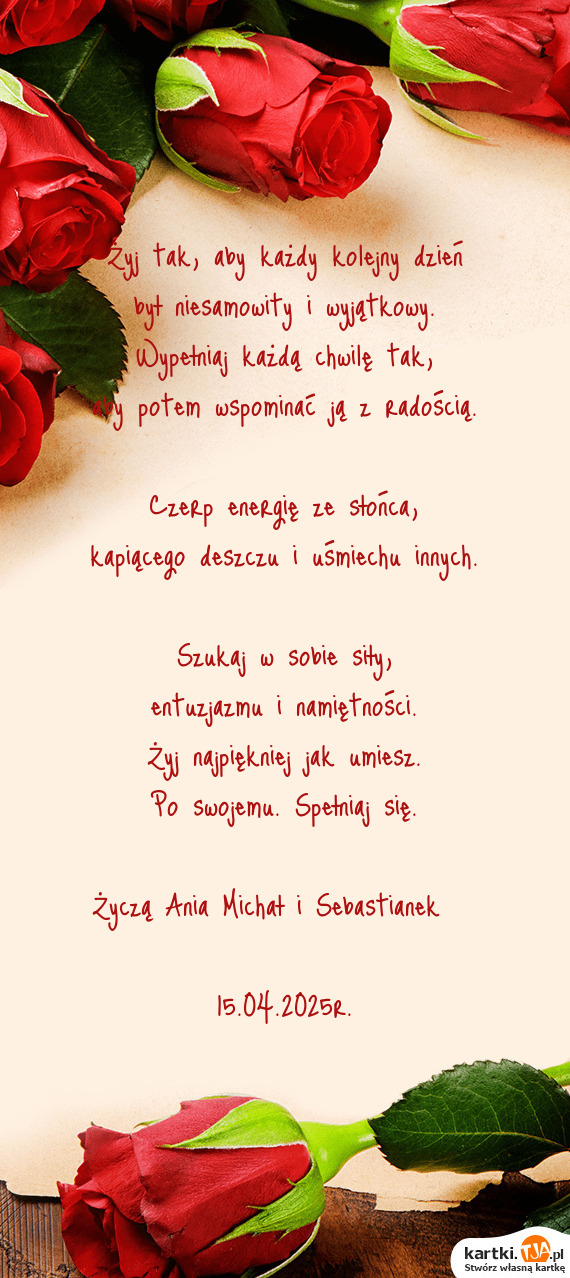 Żyj tak, aby każdy kolejny dzień
był niesamowity i wyjątkowy.
Wypełniaj każdą chwilę tak,
aby potem wspominać ją z radością.
Czerp energię ze słońca,
kapiącego deszczu i uśmiechu innych.
Szukaj w sobie siły,
entuzjazmu i namiętności.
Żyj najpiękniej jak umiesz.
Po swojemu. Spełniaj się.
Życzą Ania Michał i Sebastianek
15.04.2025r.
kartki.TJA.pl
Stwórz własną kartkę